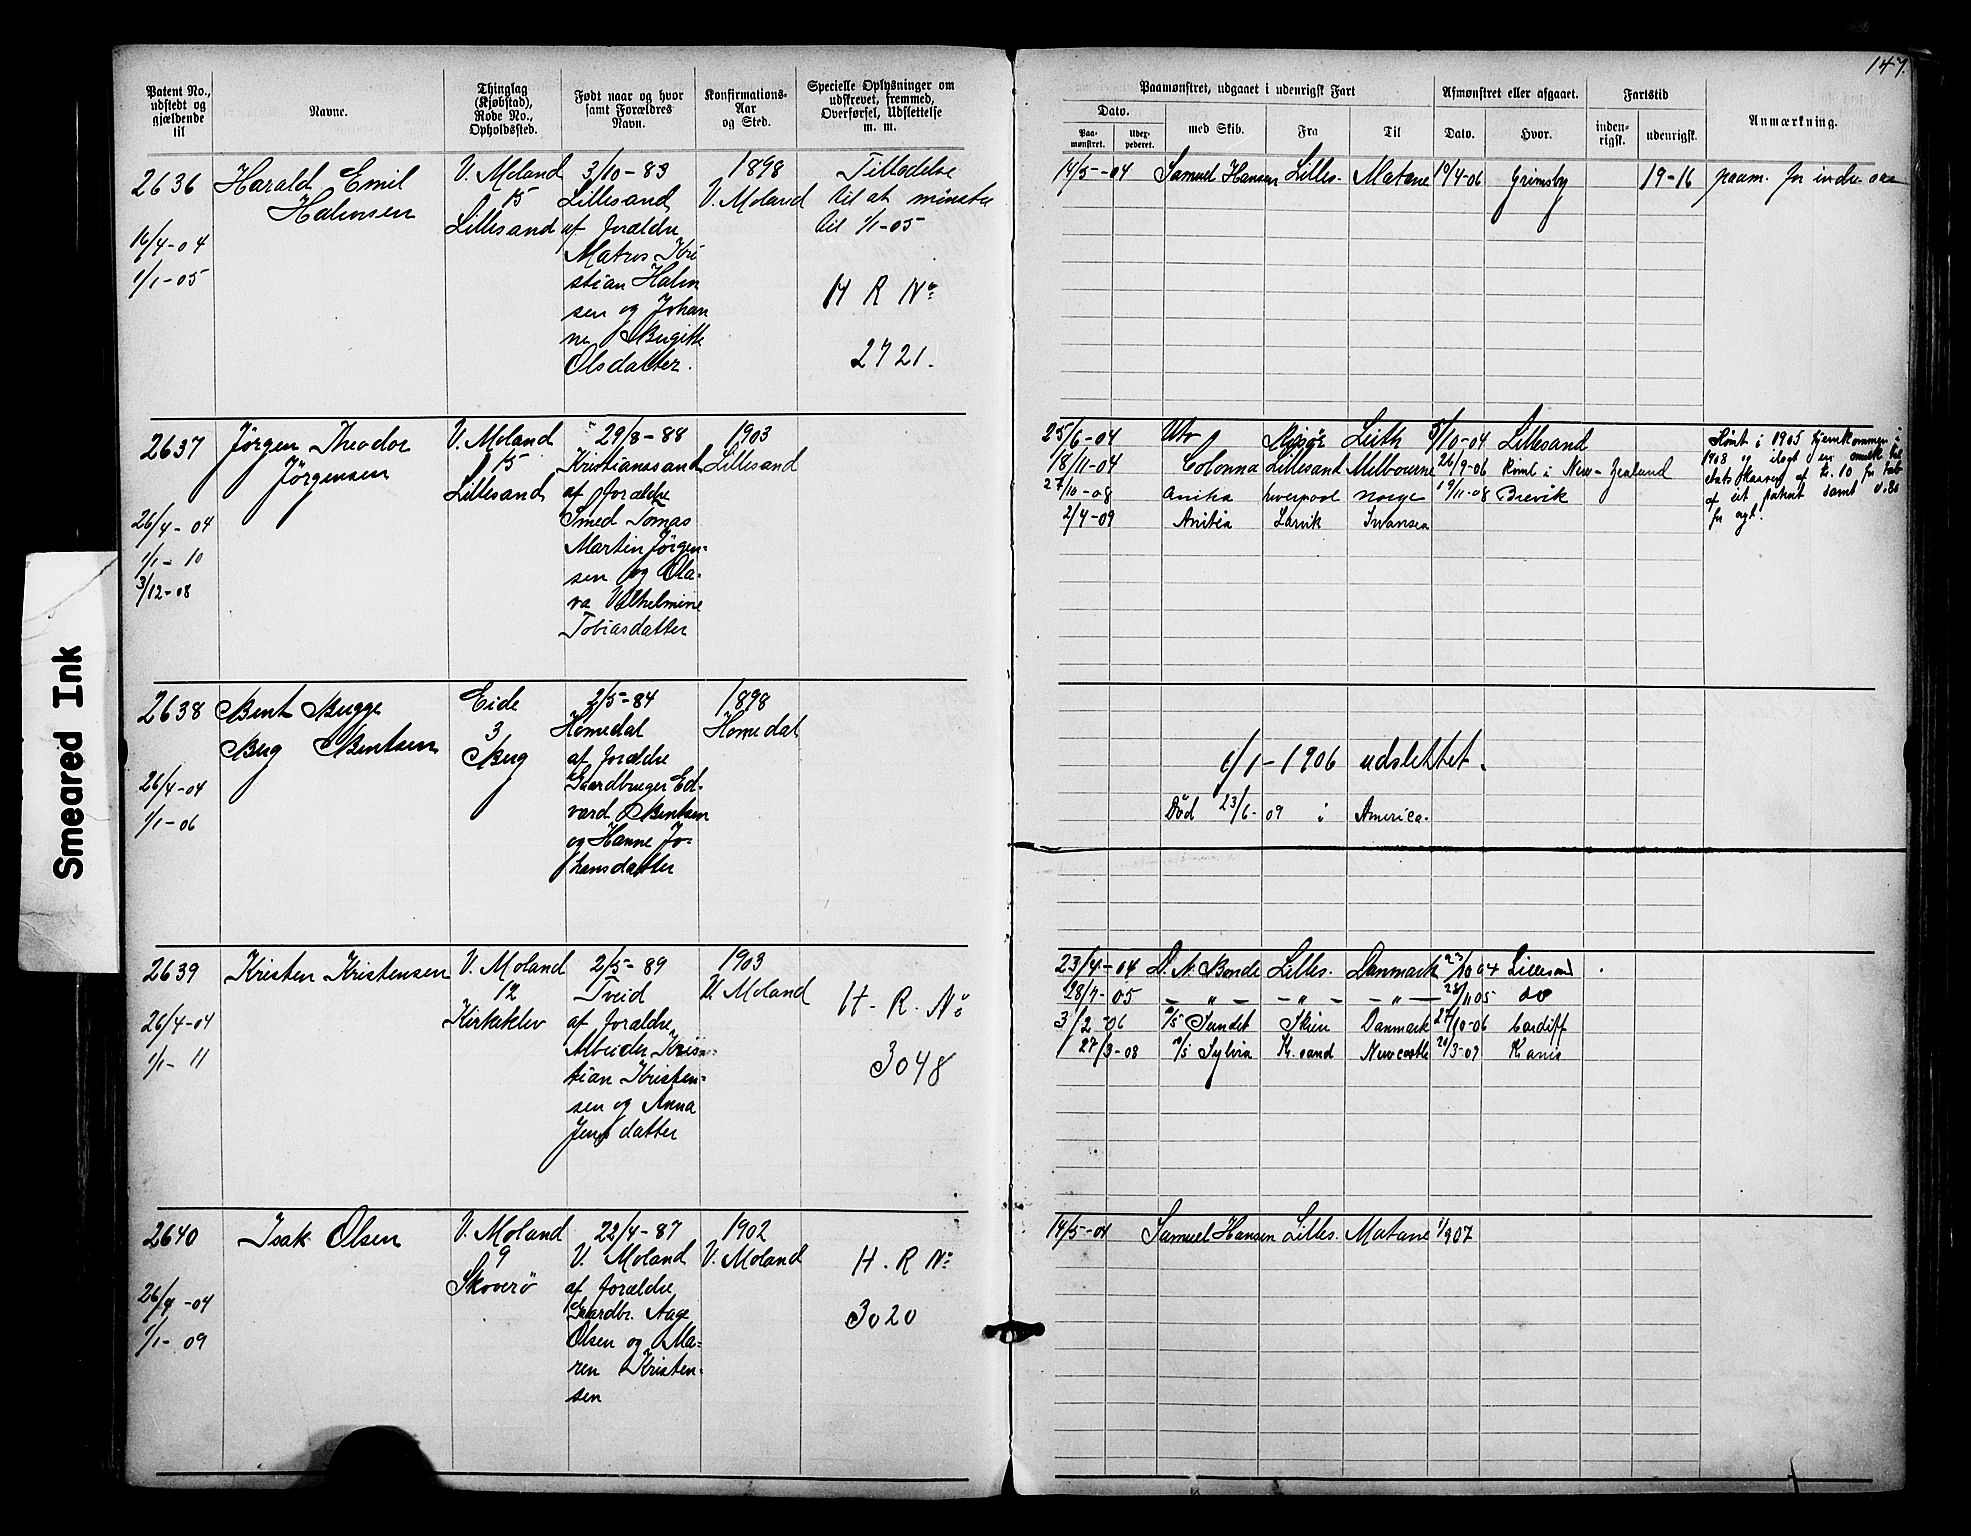 147.
Smeared Ink
Patent No., udstedt og gjældende til
Navne.
Thinglag (Kjøbstad), Rode No., Opholdssted.
Født naar og hvor samt Forældres Navn.
Konfirmations- Aar og Sted.
Specielle Oplysninger om udskrevet, fremmed, Overførsel, Udslettelse m. m.
Paamønstret, udgaaet i udenrigsk Fart
Afmønstret eller afgaaet.
Fartstid
Anmærkning.
Dato.
Paa- mønstret.
Udex- pederet.
med Skib.
Fra
Til
Dato.
Hvor.
inden- rigsk.
udenrigsk.
2636
16/4-04
1/1-05
Harald Emil
Halvorsen
V. Moland
15
Lillesand
3/10-83
Lillesand
af forældre
Matros Kri
stian Halvor
sen og Johan
ne Birgitte
Olsdatter.
1898
V. Moland
Tilladelse
til at mønstre
til 1/1-05
H R No
2721.
14/5-04 Samuel Hansen Lilles. Matane 19/4-06 Grimsby 19-16 paam. for
2637
26/4-04
1/1-10
3/12-08
Jørgen Theodor
Jörgensen
V. Moland
15
Lillesand
29/8-88
Kristianssand
af forældre
Smed Tomas
Martin Jørgen-
sen og Ola-
va Vilhelmine
Tobiasdatter
1903
Lillesand
25/6-04 Leith 5/10-04 Lillesand
18/11-04 Colonna Lillesand Melbourne 26/9-06 Römt i New-Zealand
27/10-08 Anitra Liverpool Norge 19/11-08 Brevik
2/4-09 Anitra Larvik Swansea
Römt i 1905 hjemkommen i
1908 og ilagt en
af kr. 10 for
af sit patent samt 0.80
for
2638
26/4-04
1/1-06
Bent Bugge
Berg Bentsen
Eide
3
Berg
2/5-84
Homedal
af forældre
Gaardbruger Ed-
vard Bentsen
og Hanne Jo-
hansdatter
1898
Homedal
1/1-1906 udslettet.
Död 23/6-09 i America.
2639
26/4-04
1/1-11
Kristen Kristensen
V. Moland
12
Kirkeklev
2/5-89
Tveid
af forældre
Arbeider Kris-
tian Kristen-
sen og Anna
Jensdatter
1903
V. Moland
H. R. No
3048
23/4-04 D. N. Bonde Lilles. Danmark 23/10 04 Lillesand
28/7-05 - " - - " - - " - 28/11 05 do
3/2-06 Sundet Skien Danmark 27/10-06 Cardiff
27/3-08 Sylvia K.sand Newcastle 20/3-09 Kania
2640
26/4-04
1/1-09
Isak Olsen
V. Moland
9
Skoverö
22/4-87
V. Moland
af forældre
Gaardbr. Aage
Olsen og Ma-
ren Kristen-
sen
1902
V. Moland
H. R No
3020
14/5-04 Samuel Hansen Lilles. Matane 1/9 07